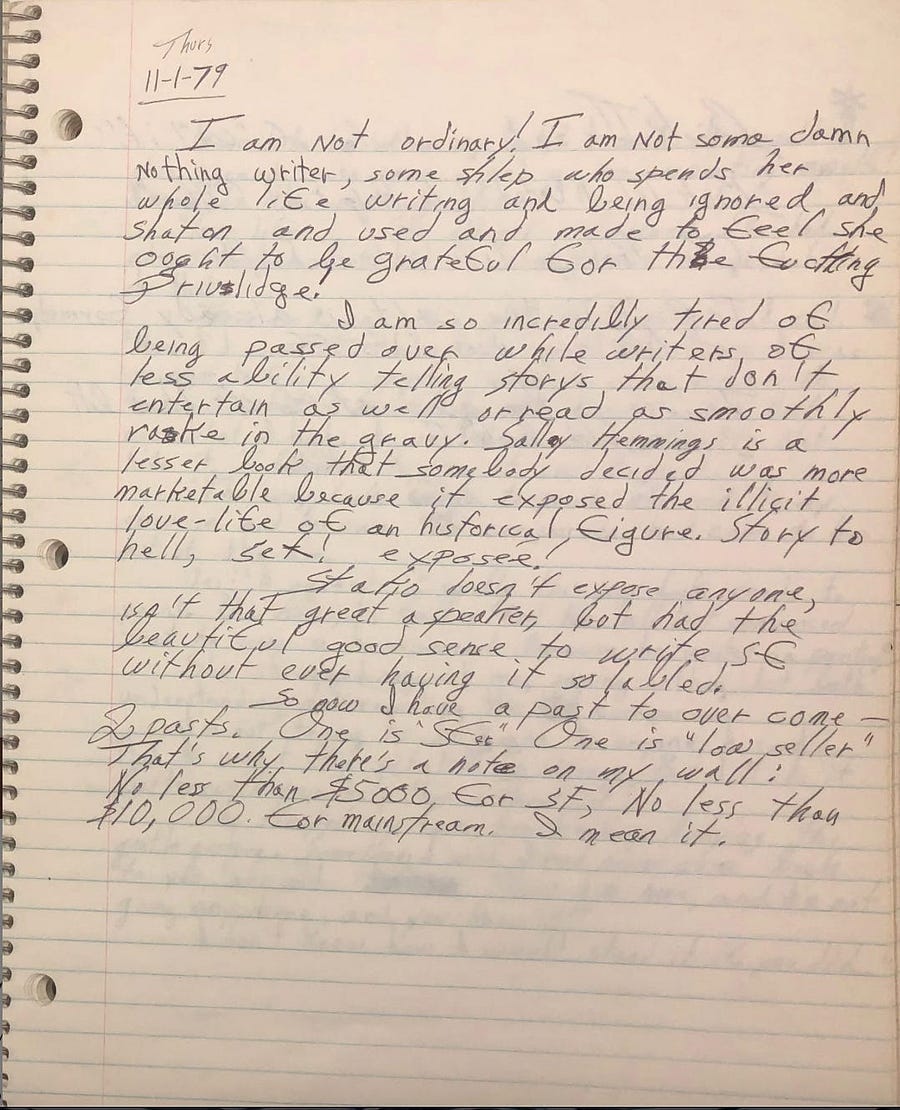 Thurs
11-1-79
I am Not ordinary! I am Not some damn
Nothing writer, some shlep who spends her
whole life writing and being ignored and
shat on and used and made to feel she
ought to be grateful for the fucking
Privilidge!
I am so incredilly tired of
being passed over while writers of
less ability telling storys that don't
entertain as well or read as smoothly
rake in the gravy. Sally Hemmings is a
lesser book that somebody decided was more
marketable because it exposed the illicit
love-life of an historical figure. Story to
hell, sex! exposee!
doesn't expose anyone,
isn't that great a speaker, but had the
beautiful good sense to write SF
without ever having it so labled.
So now I have a past to over come —
2 pasts. One is "SFer" One is "low seller"
That's why there's a note on my wall:
No less than $5000 for SF, No less than
$10,000. for mainstream. I mean it.